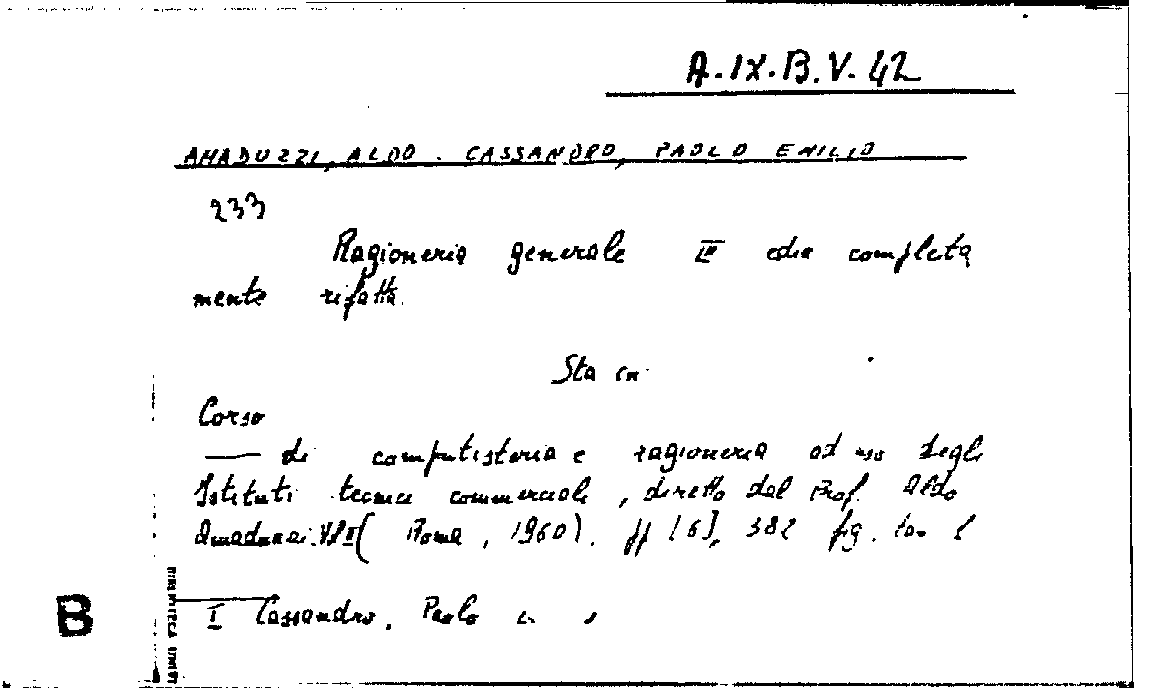 A.IX.B.V.42
AMADUZZI, ALDO . CASSANDRO, PAOLO EMILIO
233
Ragioneria generale II ediz completa
mente rifatta.
Sta in
Corso
— di computisteria e ragioneria ad uso degli
Istituti tecnici commerciali, diretto dal Prof. Aldo
Amaduzzi. Vol II ( Roma, 1960). pp [6], 382 fig. tav
I Cassandro, Paolo
B